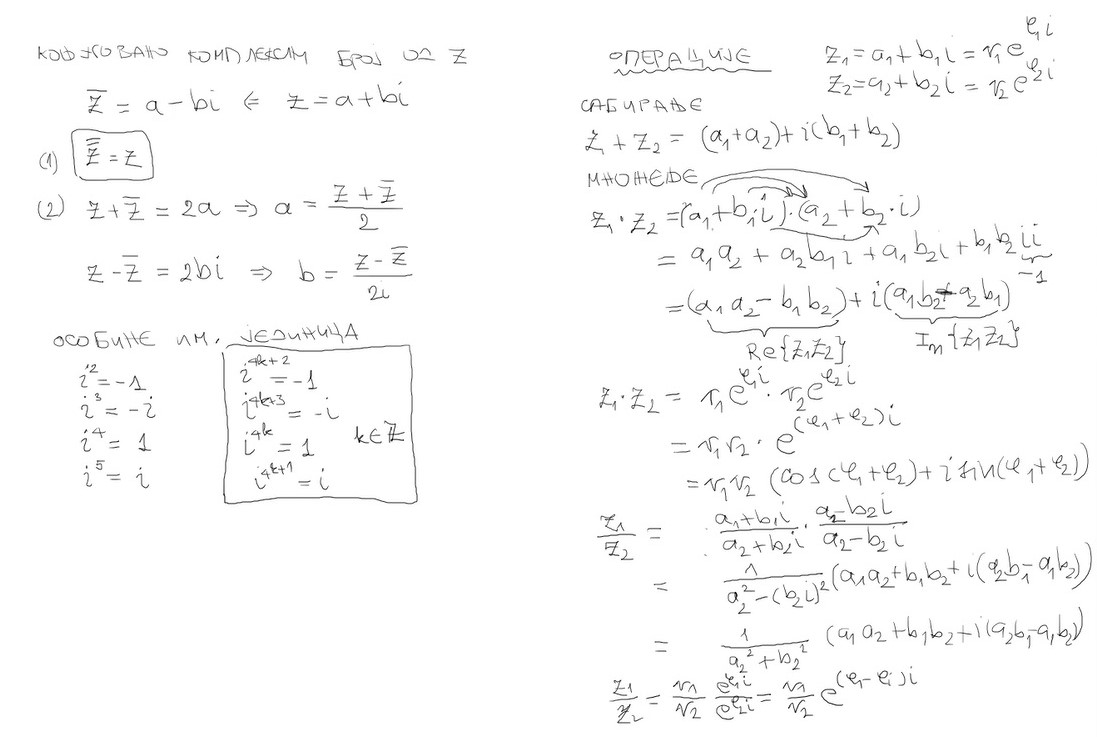 КОЊУГОВАНО КОМПЛЕКСАН БРОЈ ОД Z
z̅ = a-bi ⇐ z = a+bi
(1) z̿ = z
(2) z+z̅ = 2a ⇒ a = (z+z̅)/2
z-z̅ = 2bi ⇒ b = (z-z̅)/2i
ОСОБИНЕ ИМ. ЈЕДИНИЦА
i² = -1
i³ = -i
i⁴ = 1
i⁵ = i
i^(4k+2) = -1
i^(4k+3) = -i
i^(4k) = 1 k∈Z
i^(4k+1) = i
ОПЕРАЦИЈЕ
z₁ = a₁+b₁i = r₁e^(φ₁i)
z₂ = a₂+b₂i = r₂e^(φ₂i)
САБИРАЊЕ
z₁+z₂ = (a₁+a₂)+i(b₁+b₂)
МНОЖЕЊЕ
z₁·z₂ = (a₁+b₁i)·(a₂+b₂·i)
= a₁a₂ + a₂b₁i + a₁b₂i + b₁b₂ii
-1
= (a₁a₂ - b₁b₂) + i(a₁b₂+a₂b₁)
Re{z₁z₂} Im{z₁z₂}
z₁·z₂ = r₁e^(φ₁i) · r₂e^(φ₂i)
= r₁r₂ · e^((φ₁+φ₂)i)
= r₁r₂ (cos(φ₁+φ₂)+i sin(φ₁+φ₂))
z₁/z₂ = (a₁+b₁i)/(a₂+b₂i) · (a₂-b₂i)/(a₂-b₂i)
= 1/(a₂²-(b₂i)²) (a₁a₂+b₁b₂+i(a₂b₁-a₁b₂))
= 1/(a₂²+b₂²) (a₁a₂+b₁b₂+i(a₂b₁-a₁b₂))
z₁/z₂ = r₁/r₂ e^(φ₁i)/e^(φ₂i) = r₁/r₂ e^((φ₁-φ₂)i)